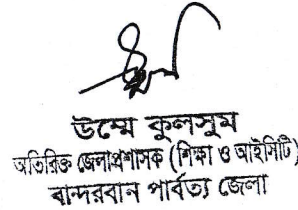 উম্মে কুলসুম
অতিরিক্ত জেলাপ্রশাসক (শিক্ষা ও আইসিটি)
বান্দরবান পার্বত্য জেলা